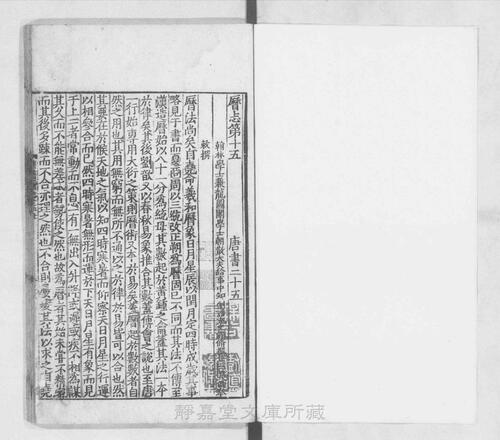 曆志第十五
唐書二十五
翰林學士兼龍圖閣學士朝散大夫給事中知
敕撰
曆法尚矣自堯命羲和曆象日月星辰以閏月定四時成歲其事
略見于書而夏商周以三統改正朔為曆固已不同而其法不傳至
漢造曆始以八十一分為統母其數起於黃鍾之龠蓋其法一本
於律矣其後劉歆又以春秋易象推合其數蓋傅會之說也至唐
一行始專用大衍之策則曆術又本於易矣蓋曆起於數數者自
然之用也其用無窮而無所不通以之於律於易皆可以合也然
其要在於候天地之氣以知四時寒暑而仰察天日月星之行運
以相參合而已然四時寒暑無形而運於下天日月星有象而見
于上二者常動而不息一有一無出入升降或遲或疾不相為謀
其久而不能無差忒者勢使之然也故為曆者其始未嘗不精密
而其後多疎而不合亦理之然也不合則屢變其法以求之自堯
靜嘉堂文庫所藏